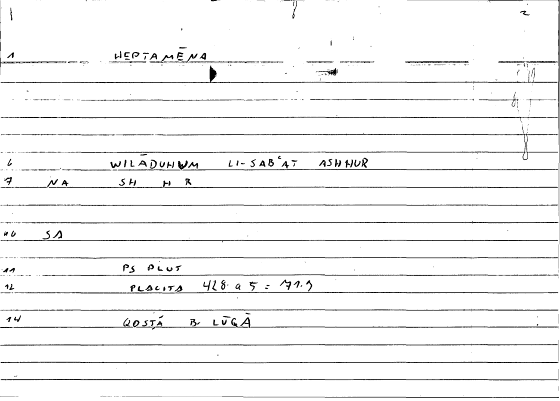 1 2
1 HEPTAMĒNA
6 WILĀDUHUM LI-SABʿAT ASHHUR
7 NA SH H R
10 SA
11 PS PLUT
12 PLACITA 428 a 5 = 71.9
14 QOSṬĀ B LŪQĀ